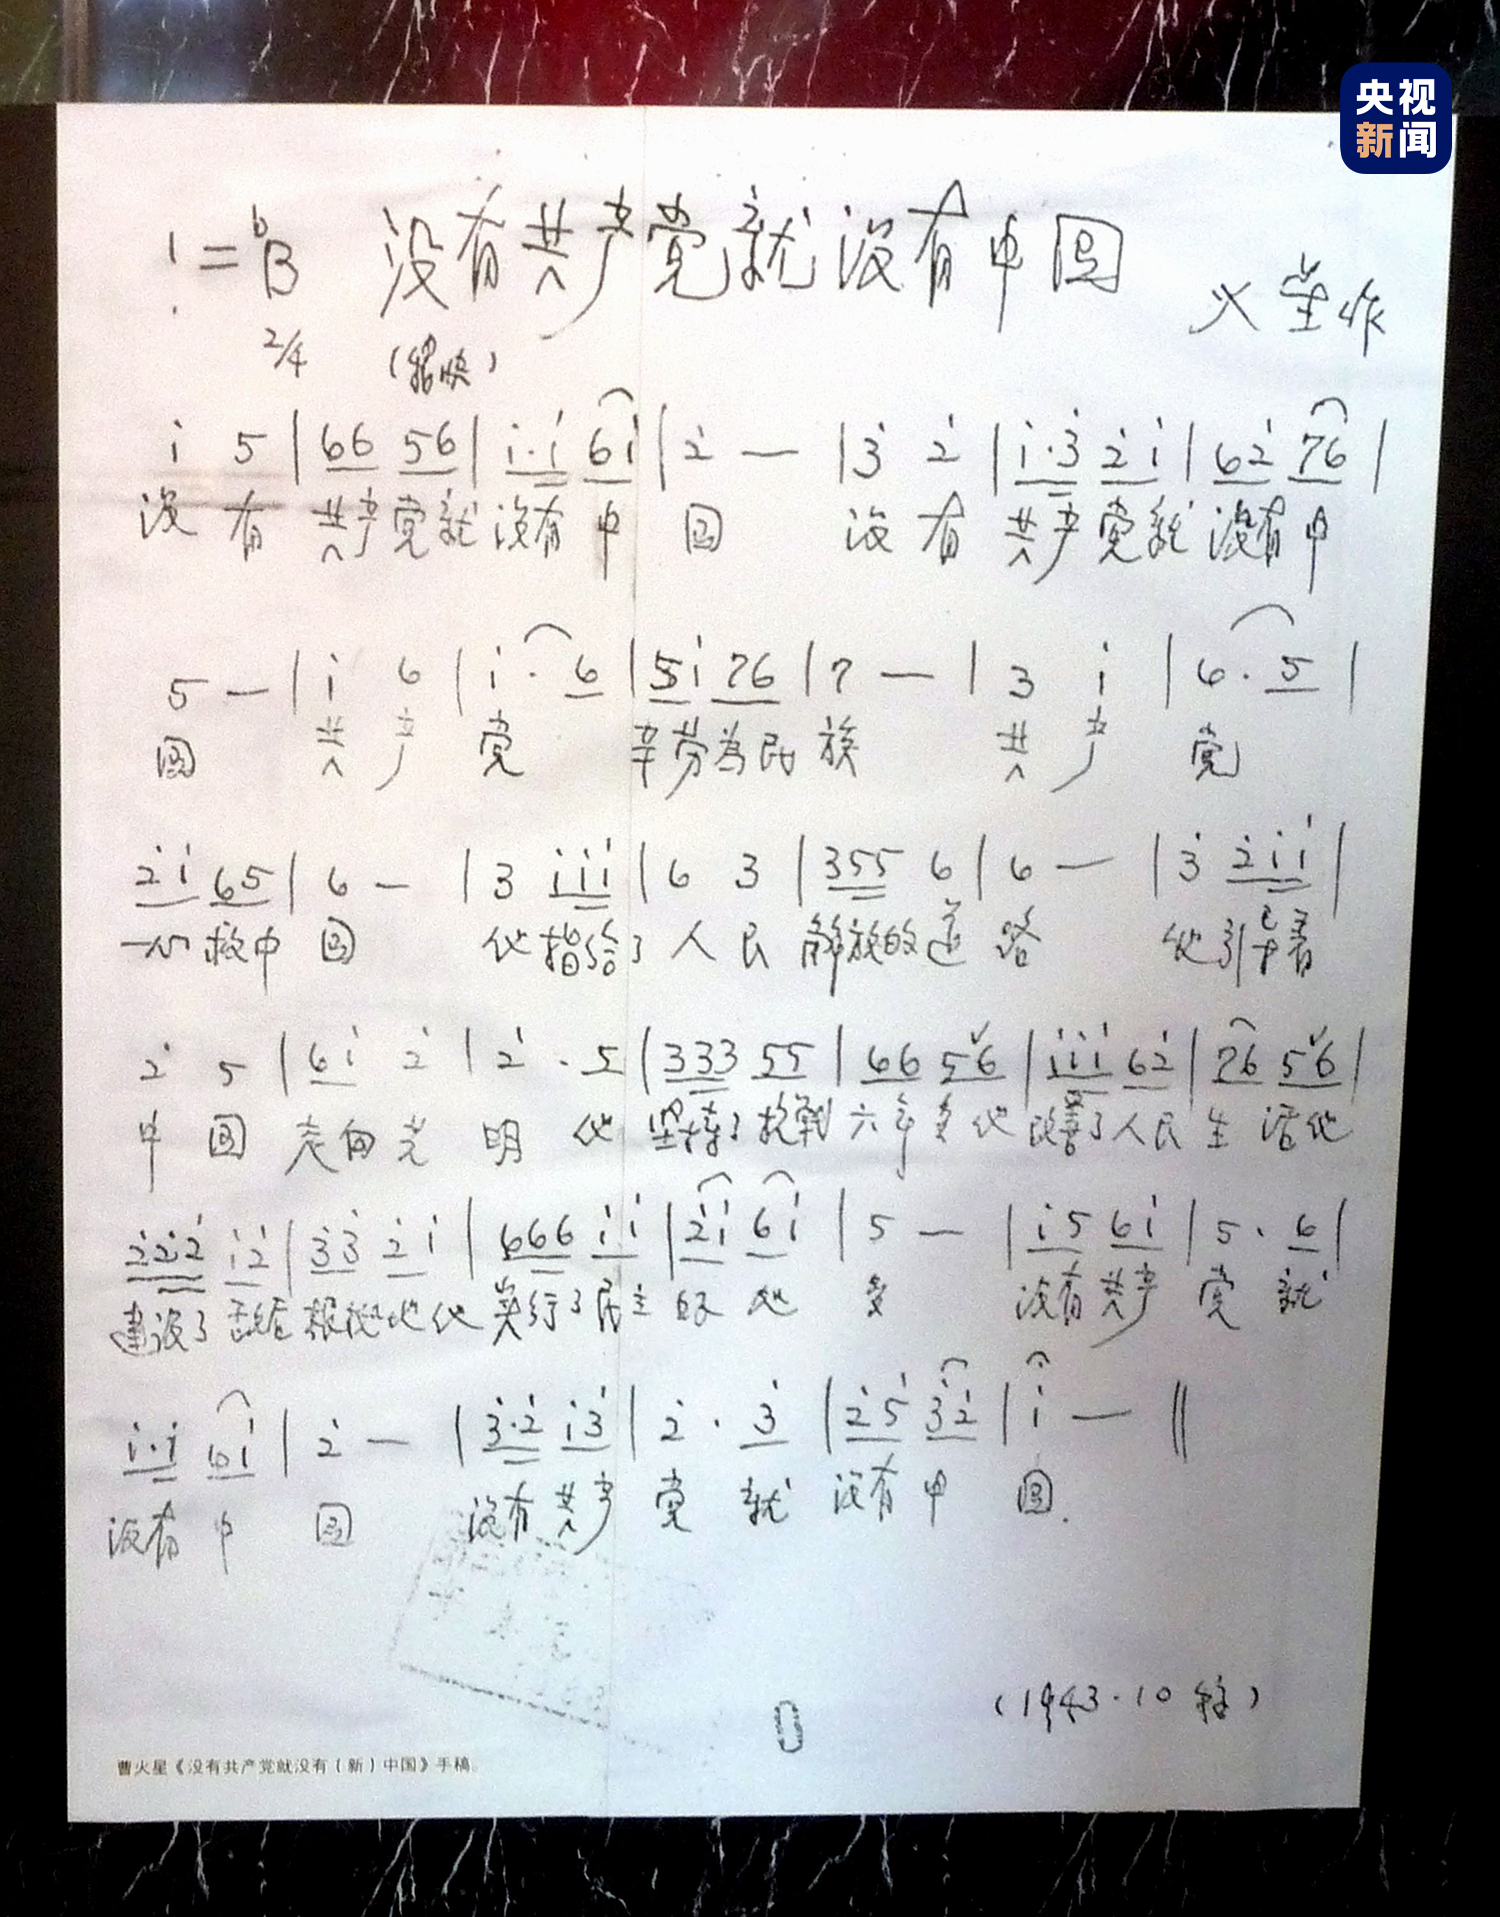 央视
新闻
1=♭B 没有共产党就没有中国
火星作
2/4 (稍快)
i 5 | 66 56 | i·i 6i | 2̇ — | 3̇ 2̇ | i·3̇ 2̇i | 62̇ 76 |
没 有 共产党就 没有 中 国 没 有 共产党就 没有中
5 — | i 6 | i · 6 | 5i 76 | 7 — | 3 i | 6 · 5 |
国 共 产 党 辛劳为民 族 共 产 党
2̇i 65 | 6 — | 3 iii | 6 3 | 355 6 | 6 — | 3̇ 2̇ii |
一心救中 国 他指给了 人 民 解放的道 路 他引导着
2̇ 5 | 6i 2̇ | 2̇ · 5 | 333 55 | 66 56 | iii 62̇ | 76 56 |
中 国 走向光 明 他 坚持了抗战 六年多他 改善了人民 生 活他
2̇2̇2̇ i2̇ | 3̇3̇ 2̇i | 666 ii | 2̇i 6i | 5 — | i5 6i | 5 · 6 |
建设了敌后 根据地他 实行了民主 好 处 多 没有共产 党 就
i·i 6i | 2̇ — | 3̇·2̇ i3̇ | 2̇ · 3̇ | 2̇5 3̇2̇ | i — ‖
没有 中 国 没有共产 党 就 没有中 国.
(1943·10 稿)
曹火星《没有共产党就没有(新)中国》手稿。